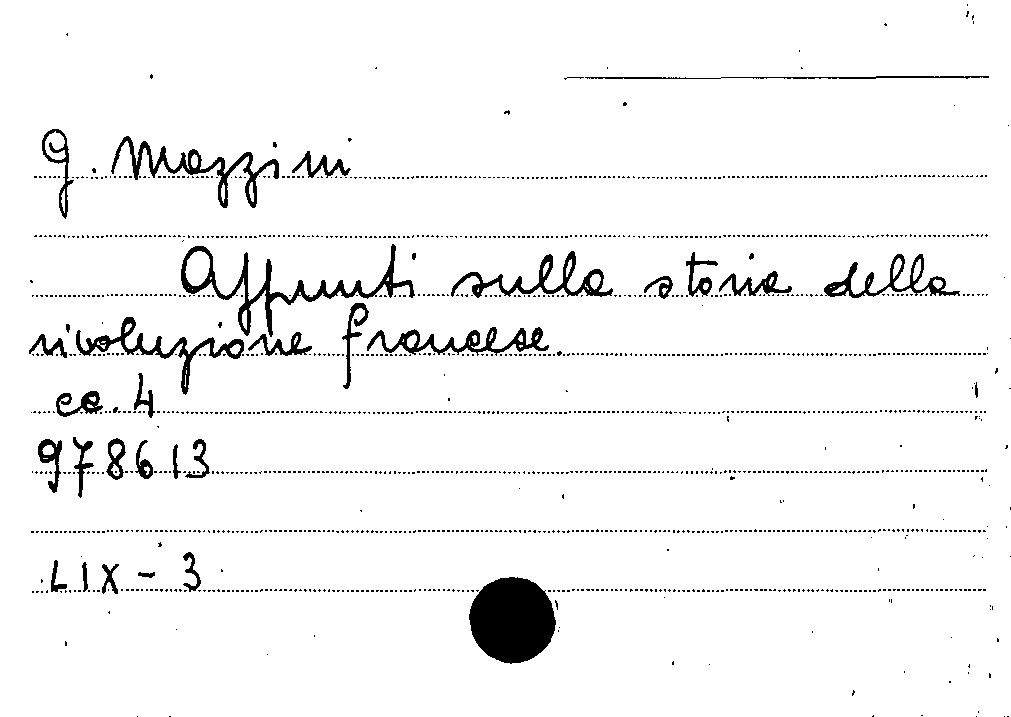 G. Mazzini
Appunti sulla storia della
rivoluzione francese.
cc. 4
978613
LIX - 3